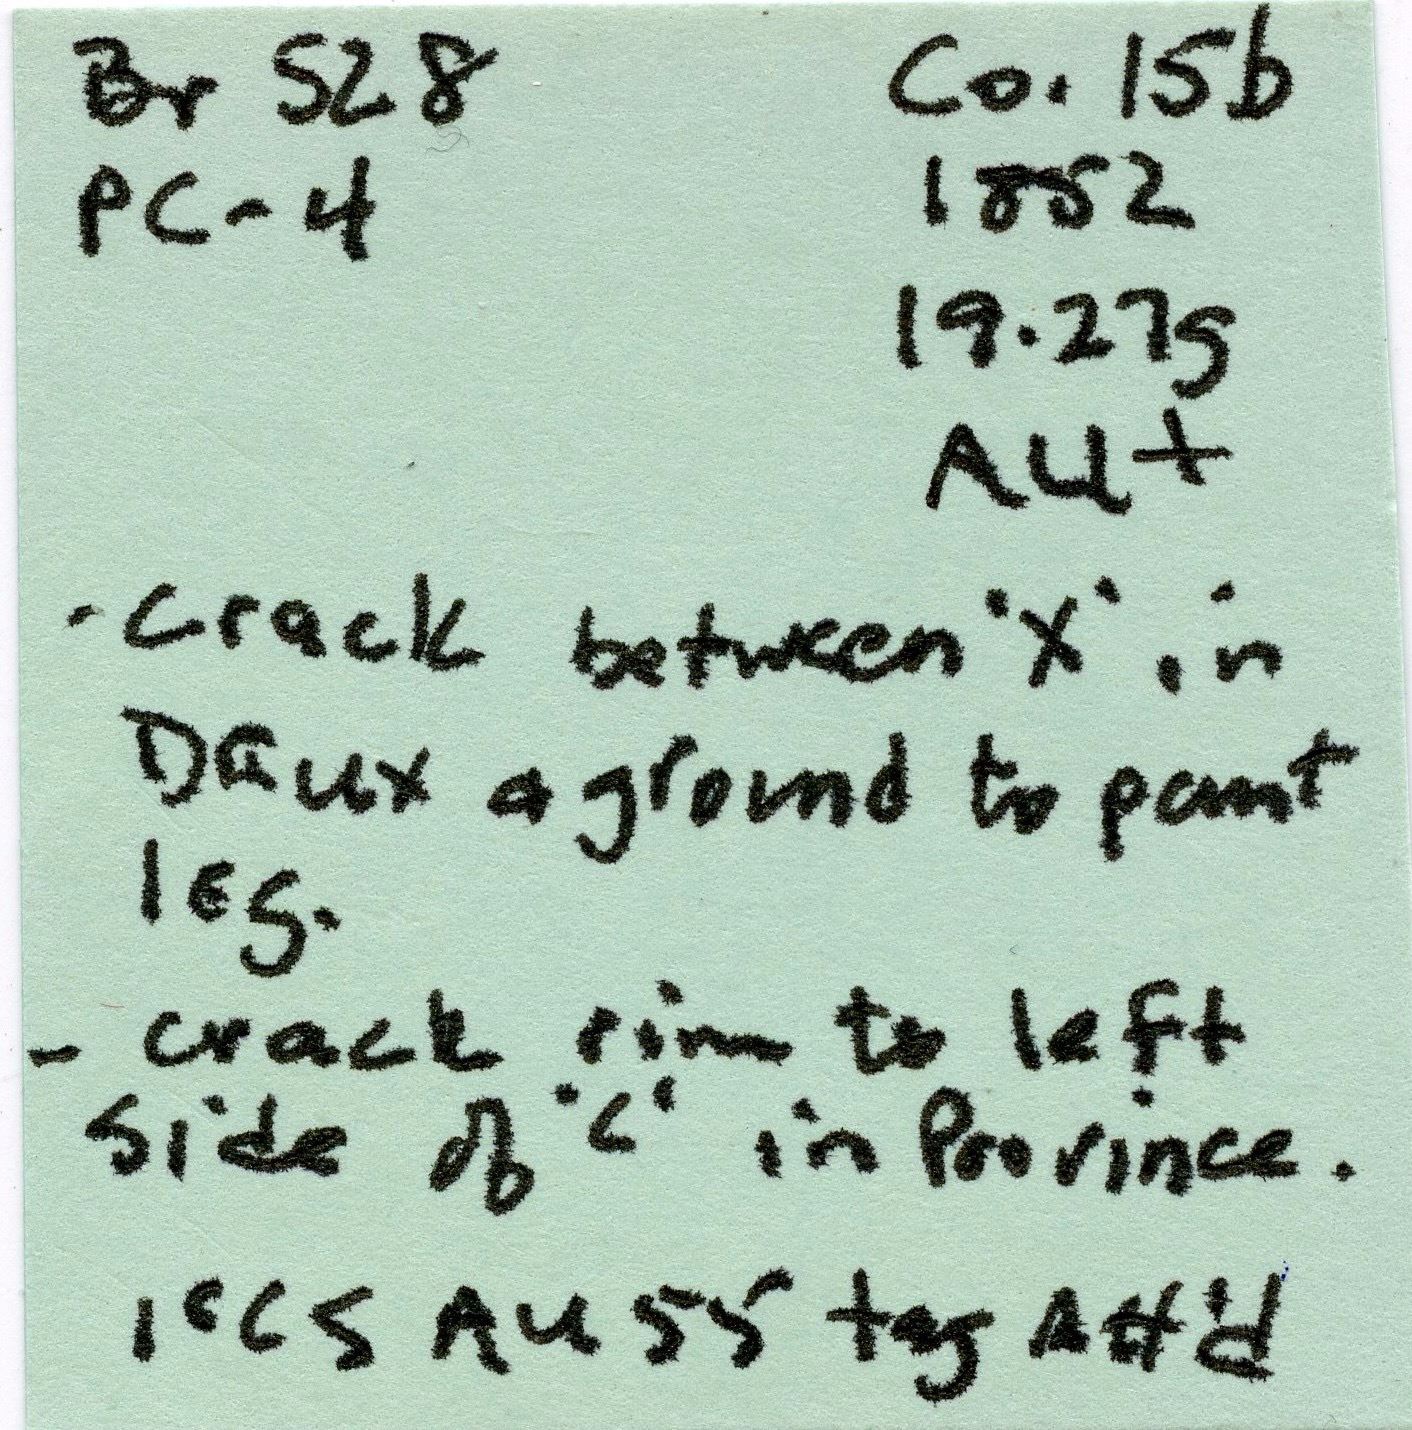 Br 528 Co. 15b
PC-4 1852
19.27g
AU+
- Crack between 'X' in
DEUX & ground to pant
leg.
- crack rim to left
side of 'C' in Province.
ICCS AU55 tag Att'd